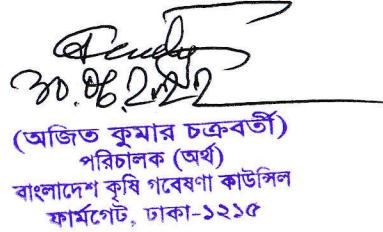 ৩০.০৬.২০২২
(অজিত কুমার চক্রবর্তী)
পরিচালক (অর্থ)
বাংলাদেশ কৃষি গবেষণা কাউন্সিল
ফার্মগেট, ঢাকা-১২১৫